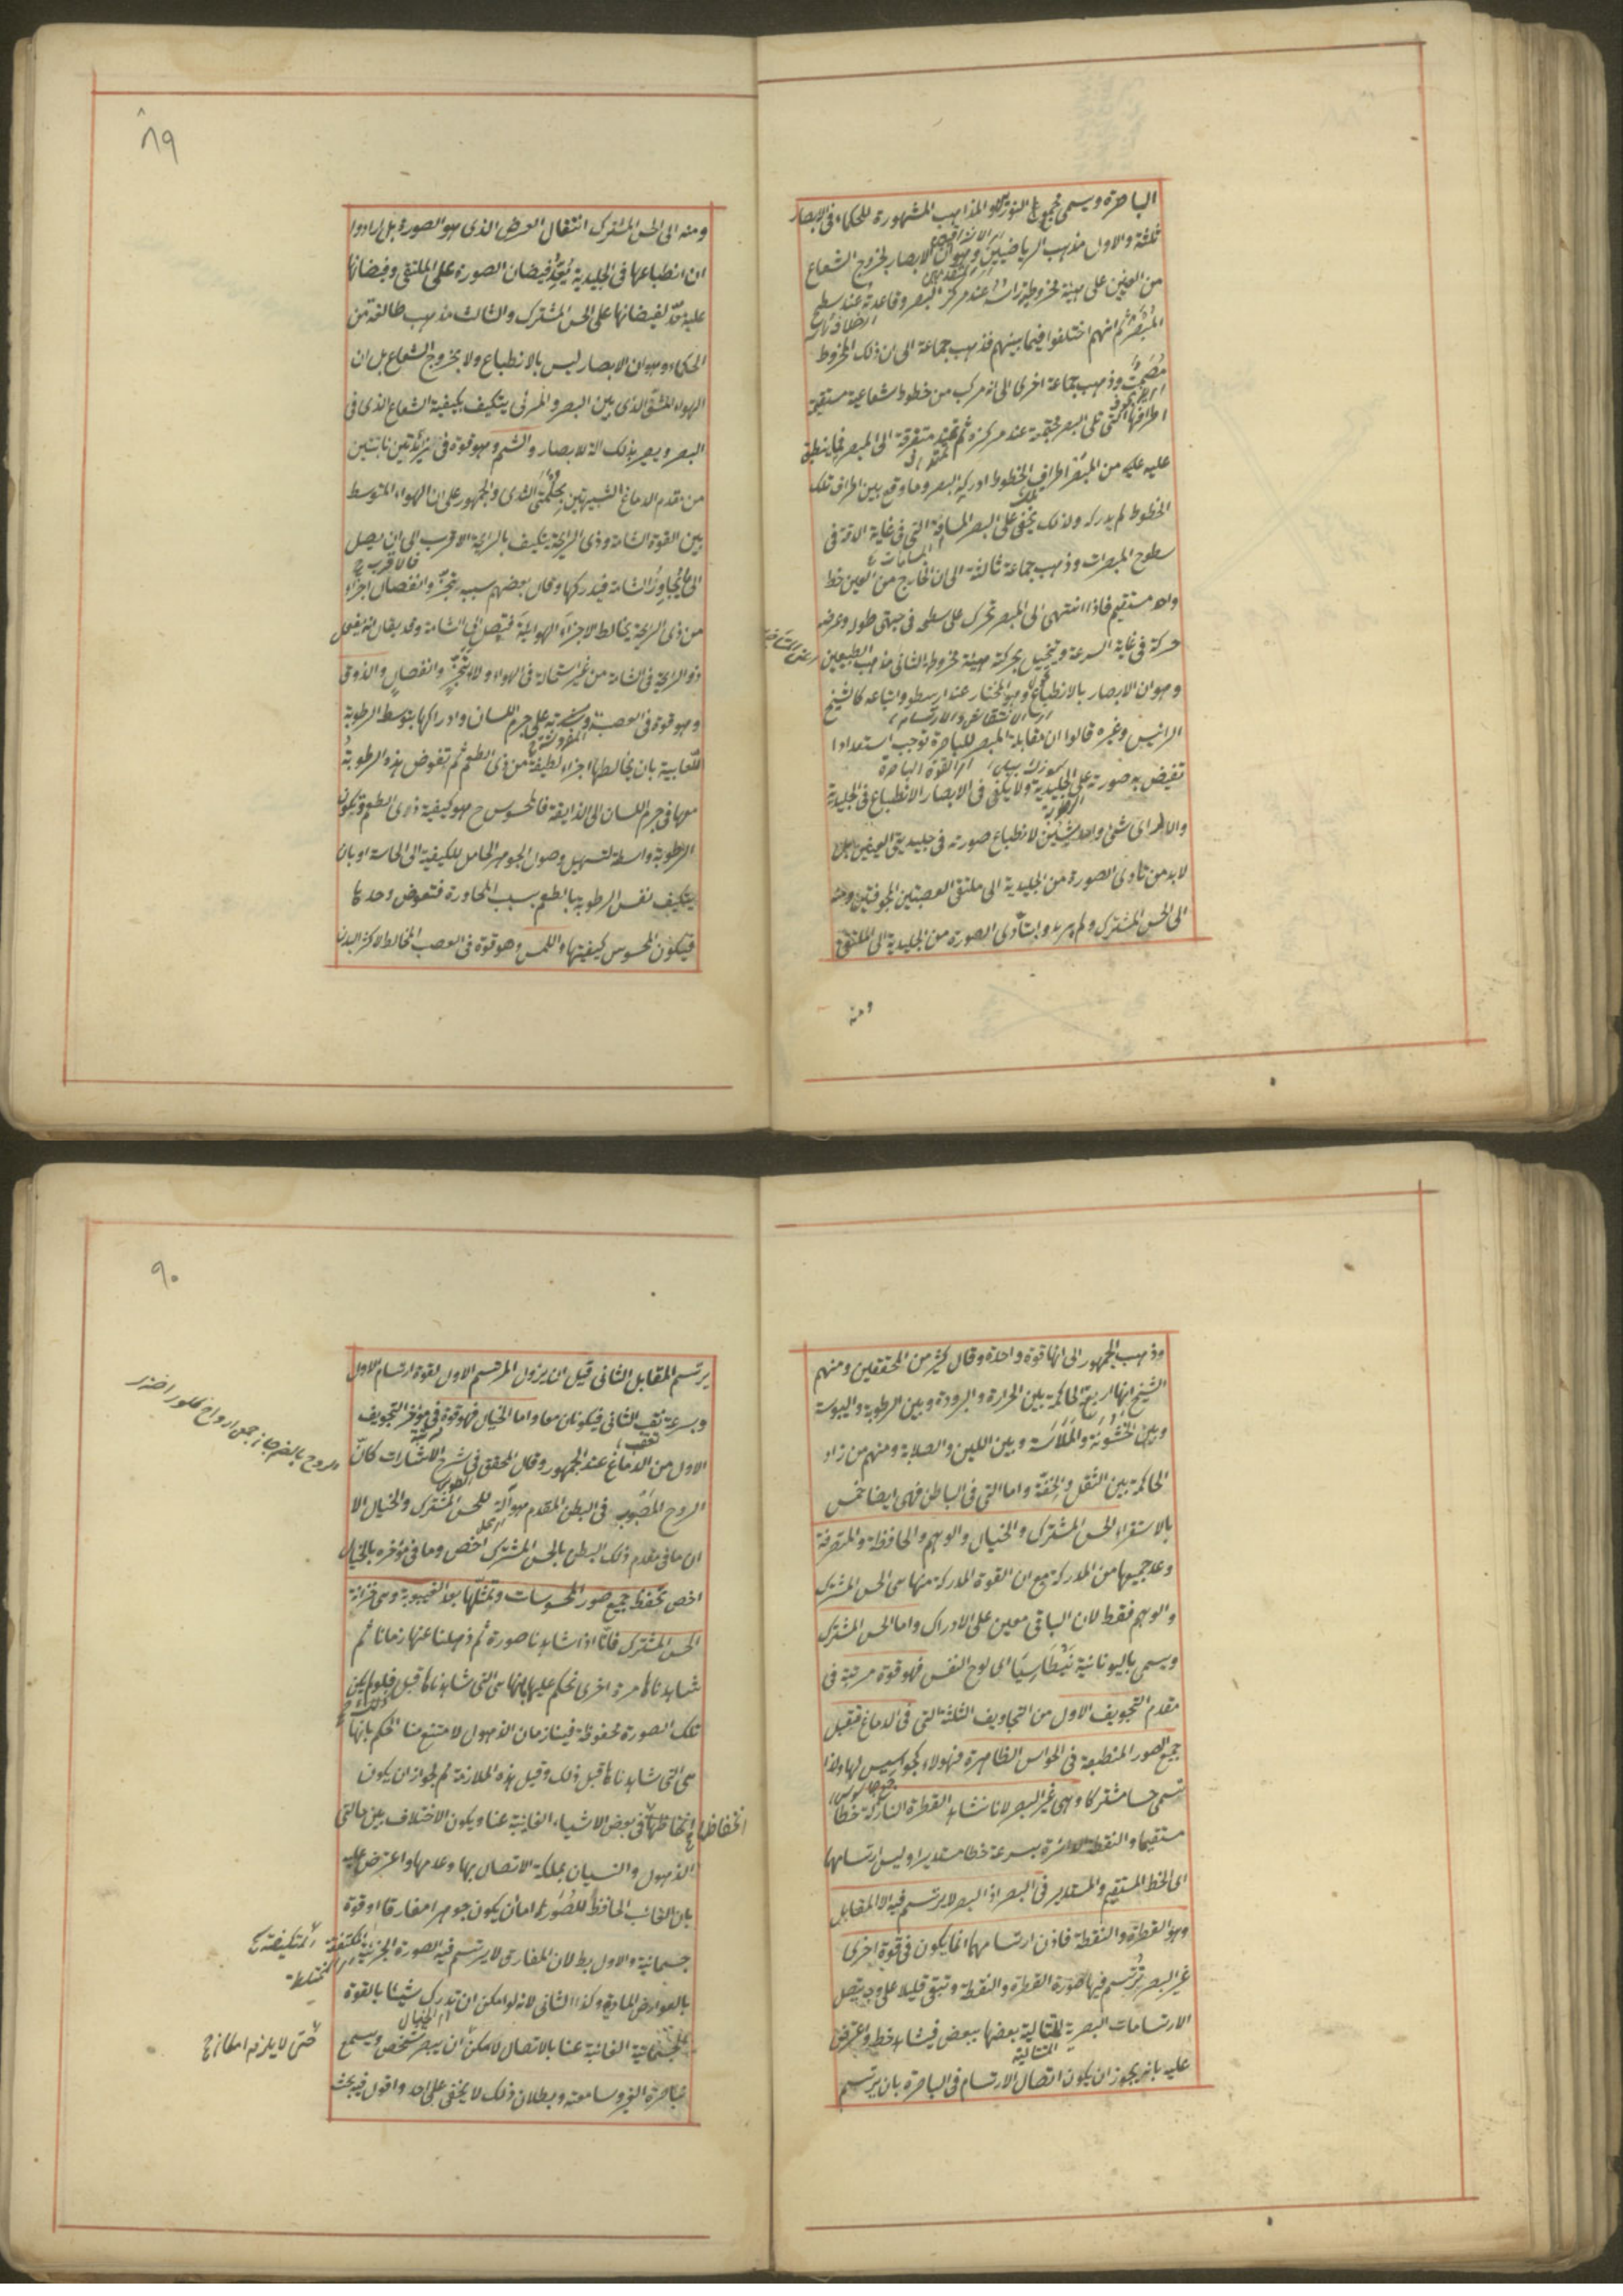 الباصرة ويسمى مجمع النور والمذاهب المشهورة للحكماء فى الابصار
ثلثة والاول مذهب الرياضيين وهو ان الابصار بخروج الشعاع
من العين على هيئة مخروط رأسه عند مركز البصر وقاعدته عند سطح
المبصر ثم انهم اختلفوا فيما بينهم فذهب جماعة الى ان ذلك المخروط
مصمت وذهب جماعة اخرى الى انه مركب من خطوط شعاعية مستقيمة
اطرافها التى تلى البصر مجتمعة عند مركزه ثم تمتد متفرقة الى المبصر فما ينطبق
عليه من المبصر اطراف الخطوط ادركه البصر وما وقع بين اطراف تلك
الخطوط لم يدركه ولذلك يخفى على البصر المسامات التى فى غاية الدقة فى
سطوح المبصرات وذهب جماعة ثالثة الى ان الخارج من العين خط
واحد مستقيم فاذا انتهى الى المبصر تحرك على سطحه فى جهتى طوله وعرضه
حركة فى غاية السرعة ويتخيل بحركته هيئة مخروطة الثانى مذهب الطبيعين
وهو ان الابصار بالانطباع وهو المختار عند ارسطو واتباعه كالشيخ
الرئيس وغيره قالوا ان مقابلة المبصر للباصرة توجب استعدادا
تفيض به صورته على الجليدية ولا يكفى فى الابصار الانطباع فى الجليدية
والا لرأى شئ واحد شيئين لانطباع صورته فى جليديتى العينين بل
لابد من تأدى الصورة من الجليدية الى ملتقى العصبتين المجوفتين ومنه
الى الحس المشترك ولم يريدوا بتأدى الصورة من الجليدية الى الملتقى
ومنه
٨٩
ومنه الى الحس المشترك انتقال العرض الذى هو الصورة بل ارادوا
ان انطباعها فى الجليدية معد لفيضان الصورة على الملتقى وفيضانها
عليه معد لفيضانها على الحس المشترك والثالث مذهب طائفة من
الحكماء وهو ان الابصار ليس بالانطباع ولا بخروج الشعاع بل ان
الهواء المشف الذى بين البصر والمرئى يتكيف بكيفية الشعاع الذى فى
البصر ويصير بذلك آلة للابصار والشم وهو قوة فى زائدتين نابتتين
من مقدم الدماغ الشبيهتين بحلمتى الثدى والجمهور على ان الهواء المتوسط
بين القوة الشامة وذى الرايحة يتكيف بالرايحة الاقرب الى ان يصل
الى ما يجاور الشامة فيدركها وقال بعضهم سببه تبخر وانفصال اجزاء
من ذى الرايحة يخالط الاجزاء الهوائية فيصل الى الشامة وقد يقال انه يفعل
ذو الرايحة فى الشامة من غير استحالة فى الهواء ولا تبخر وانفصال والذوق
وهو قوة فى العصبة المفروشة على جرم اللسان وادراكها بتوسط الرطوبة
اللعابية بان يخالطها اجزاء لطيفة من ذى الطعم ثم تغوص هذه الرطوبة
معها فى جرم اللسان الى الذايقة فالمحسوس ح هو كيفية ذى الطعم ويكون
الرطوبة واسطة لتسهيل وصول الجوهر الحامل للكيفية الى الحاسة او بان
يتكيف نفس الرطوبة بالطعم بسبب المجاورة فتغوص وحدها
فيكون المحسوس كيفيتها واللمس وهو قوة فى العصب المخالط لاكثر البدن
وذهب الجمهور الى انها قوة واحدة وقال كثير من المحققين ومنهم
الشيخ انها اربع الحاكمة بين الحرارة والبرودة وبين الرطوبة واليبوسة
وبين الخشونة والملاسة وبين اللين والصلابة ومنهم من زاد
الحاكمة بين الثقل والخفة واما التى فى الباطن فهى ايضا خمس
بالاستقراء الحس المشترك والخيال والوهم والحافظة والمتصرفة
وعد جميعها من المدركة مع ان القوة المدركة منها هى الحس المشترك
والوهم فقط لان الباقى معين على الادراك واما الحس المشترك
ويسمى باليونانية بنطاسيا اى لوح النفس فهو قوة مرتبة فى
مقدم التجويف الاول من التجاويف الثلثة التى فى الدماغ تقبل
جميع الصور المنطبعة فى الحواس الظاهرة فهؤلاء كجواسيس لها ولذا
تسمى حسا مشتركا وهى غير البصر لانا نشاهد القطرة النازلة خطا
مستقيما والنقطة الدائرة بسرعة خطا مستديرا وليس ارتسامها
اى الخط المستقيم والمستدير فى البصر اذ البصر لا يرتسم فيه الا المقابل
وهو القطرة والنقطة فاذن ارتسامهما انما يكون فى قوة اخرى
غير البصر ترتسم فيها صورة القطرة والنقطة وتبقى قليلا على وجه يتصل
الارتسامات البصرية المتتالية بعضها ببعض فيشاهد خط واعترض
عليه بانه يجوز ان يكون اتصال الارتسام فى الباصرة بان يرتسم
٩٠
يرتسم المقابل الثانى قبل ان يزول المرتسم الاول لقوة ارتسام الاول
وبسرعة تعقب الثانى فيكونان معا واما الخيال فهو قوة فى مؤخر التجويف
الاول من الدماغ عند الجمهور وقال المحقق فى شرح الاشارات كأن
الروح المصبوب فى البطن المقدم هو آلة للحس المشترك والخيال الا
ان ما فى مقدم ذلك البطن بالحس المشترك اخص وما فى مؤخره بالخيال
اخص تحفظ جميع صور المحسوسات وتمثلها بعد الغيبوبة وهى خزانة
الحس المشترك فانا اذا شاهدنا صورة ثم ذهلنا عنها زمانا ثم
شاهدناها مرة اخرى نحكم عليها بانها هى التى شاهدناها قبل فلو لم يكن
تلك الصورة محفوظة فينا زمان الذهول لامتنع منا الحكم بانها
هى التى شاهدناها قبل ذلك وقيل هذه الملازمة لم لجواز ان يكون
انحفاظها فى بعض الاشياء الغائبة عنا ويكون الاختلاف بين حالتى
انحفاظها
الذهول والنسيان بملكة الاتصال بها وعدمها واعترض عليه
بان الغائب الحافظ للصور اما ان يكون جوهرا مفارقا او قوة
جسمانية والاول بط لان المفارق لا يرتسم فيه الصورة الجزئية المكتنفة
بالعوارض المادية وكذا الثانى لانه لو امكن ان تدرك شيئا بالقوة
الجسمانية الغائبة عنا بالاتصال لامكن ان يبصر شخص ويسمع
بباصرة الغير وسامعته وبطلان ذلك لا يخفى على احد واقول فيه بحث